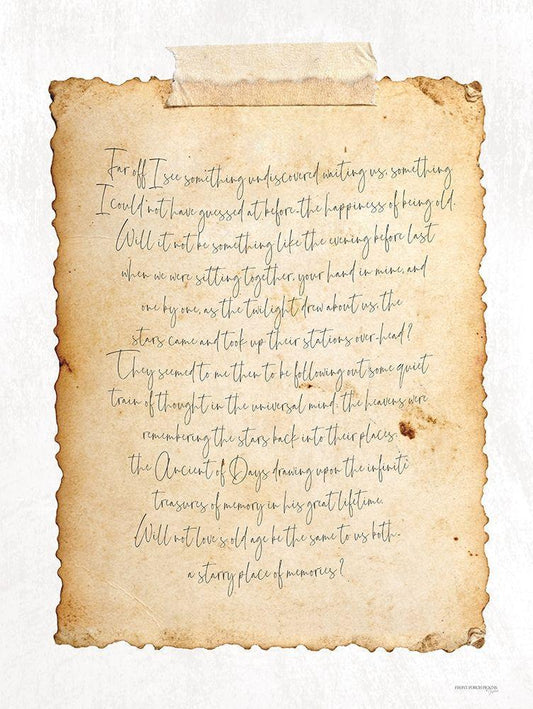 Far off I see something undiscovered waiting us, something
I could not have guessed at before, the happiness of being old.
Will it not be something like the evening before last
when we were sitting together, your hand in mine, and
one by one, as the twilight drew about us, the
stars came and took up their stations over-head?
They seemed to me then to be following out some quiet
train of thought in the universal mind, the heavens were
remembering the stars back into their places,
the Ancient of Days drawing upon the infinite
treasures of memory in his great lifetime.
Will not love's old age be the same to us both,
a starry place of memories?